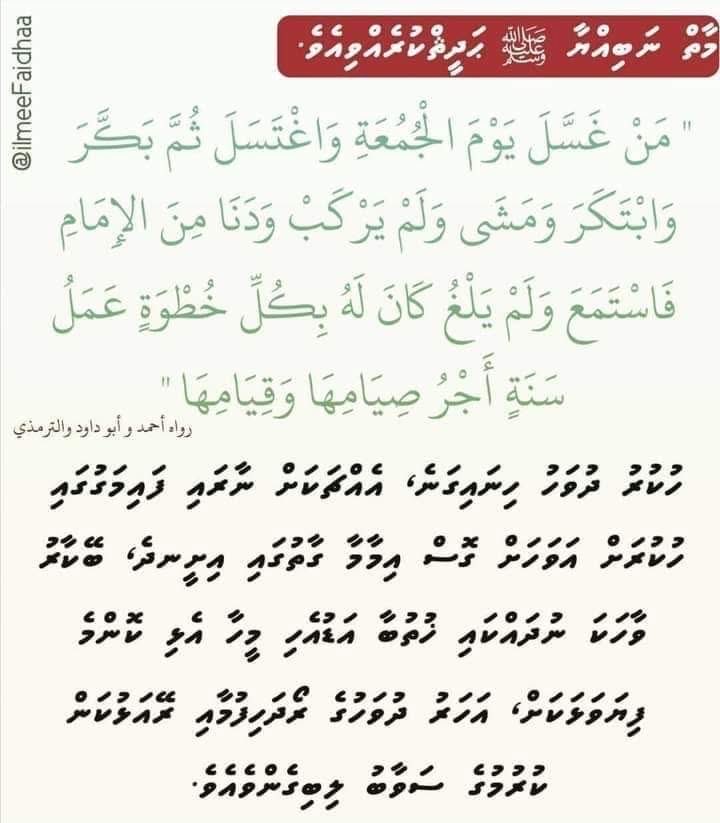 މާތް ނަބިއްޔާ ﷺ ޙަދީޘްކުރެއްވިއެވެ.
@ilmeeFaidhaa
" مَنْ غَسَّلَ يَوْمَ الْجُمُعَةِ وَاغْتَسَلَ ثُمَّ بَكَّرَ
وَابْتَكَرَ وَمَشَى وَلَمْ يَرْكَبْ وَدَنَا مِنَ الإِمَامِ
فَاسْتَمَعَ وَلَمْ يَلْغُ كَانَ لَهُ بِكُلِّ خُطْوَةٍ عَمَلُ
سَنَةٍ أَجْرُ صِيَامِهَا وَقِيَامِهَا "
رواه أحمد و أبو داود والترمذي
ހުކުރު ދުވަހު ހިނައިގަނެ، އެއްޗަކަށް ނާރައި ފައިމަގުގައި
ހުކުރަށް އަވަހަށް ގޮސް އިމާމާ ގާތުގައި އިށީނދެ، ބޭކާރު
ވާހަކަ ނުދައްކައި ޚުތުބާ އަޑުއެހި މީހާ އެޅި ކޮންމެ
ފިޔަވަޅަކަށް، އަހަރު ދުވަހުގެ ރޯދަހިފުމާއި ރޭއަޅުކަން
ކުރުމުގެ ސަވާބު ލިބިގެންވެއެވެ.